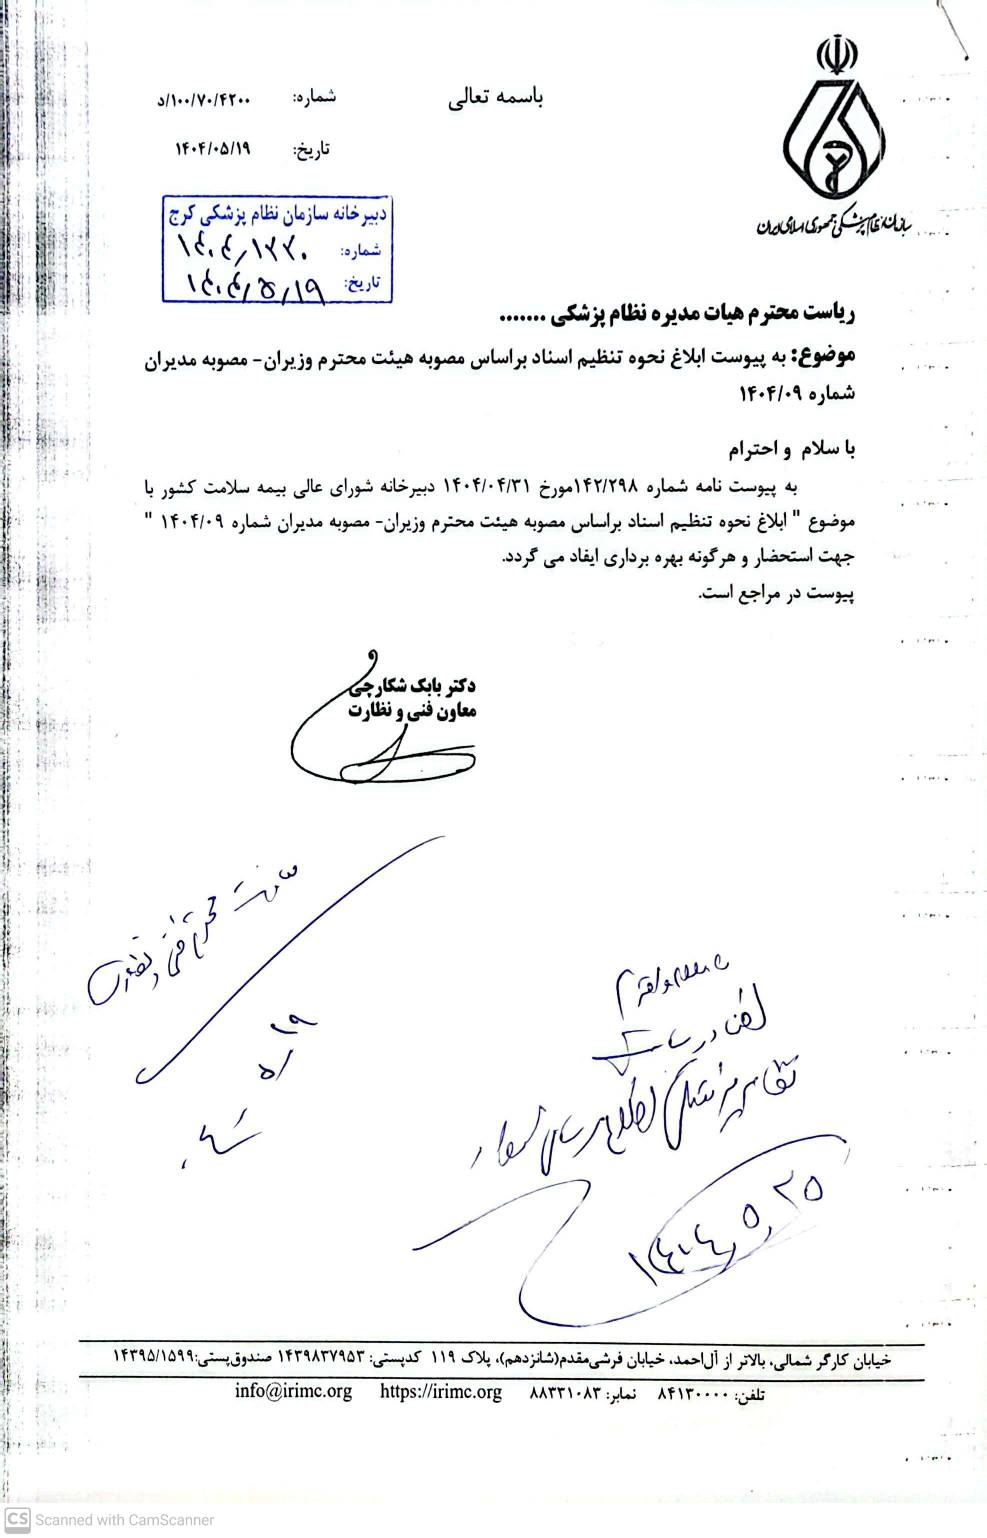 باسمه تعالی
شماره: ۱۰۰/۷۰/۴۲۰۰/د
تاریخ: ۱۴۰۴/۰۵/۱۹
سازمان نظام پزشکی جمهوری اسلامی ایران
دبیرخانه سازمان نظام پزشکی کرج
شماره: ۱۴۰۴/۱۲۲۰
تاریخ: ۱۴۰۴/۵/۱۹
ریاست محترم هیات مدیره نظام پزشکی .......
موضوع: به پیوست ابلاغ نحوه تنظیم اسناد براساس مصوبه هیئت محترم وزیران- مصوبه مدیران
شماره ۱۴۰۴/۰۹
با سلام و احترام
به پیوست نامه شماره ۱۴۲/۲۹۸مورخ ۱۴۰۴/۰۴/۳۱ دبیرخانه شورای عالی بیمه سلامت کشور با
موضوع " ابلاغ نحوه تنظیم اسناد براساس مصوبه هیئت محترم وزیران- مصوبه مدیران شماره ۱۴۰۴/۰۹ "
جهت استحضار و هرگونه بهره برداری ایفاد می گردد.
پیوست در مراجع است.
دکتر بابک شکارچی
معاون فنی و نظارت
معاونت محترم فنی و نظارت
۵/۱۹
با سلام و احترام
لطفا در سایت
نظام پزشکی اطلاع رسانی شود
۱۴۰۴/۵/۲۵
خیابان کارگر شمالی، بالاتر از آل‌احمد، خیابان فرشی‌مقدم(شانزدهم)، پلاک ۱۱۹ کدپستی: ۱۴۳۹۸۳۷۹۵۳ صندوق‌پستی:۱۴۳۹۵/۱۵۹۹
تلفن: ۸۴۱۳۰۰۰۰ نمابر: ۸۸۳۳۱۰۸۳ https://irimc.org info@irimc.org
CS Scanned with CamScanner